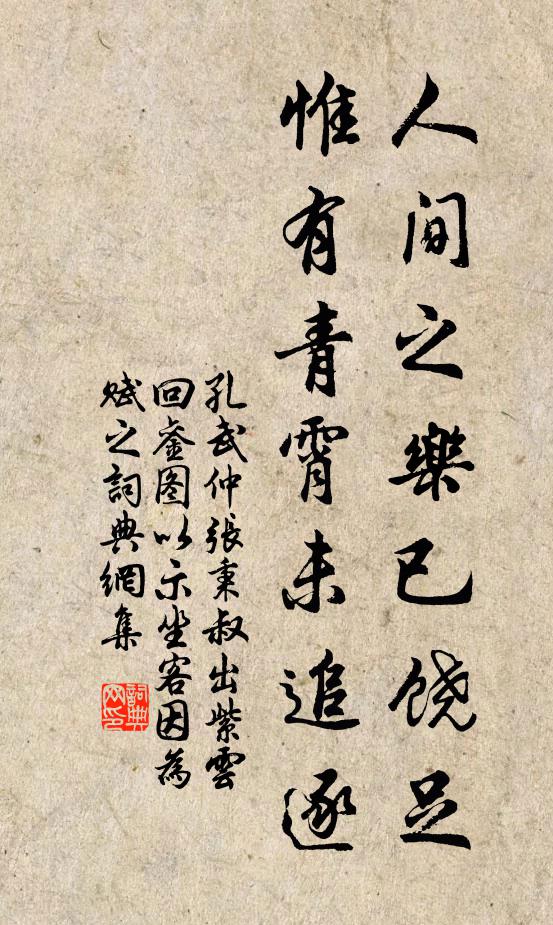 人间之樂已饶足
惟有青霄未追逐
孔武仲張秉叔出紫雲
回銮图以示坐客因為
赋之詞典網集
詞典
网印